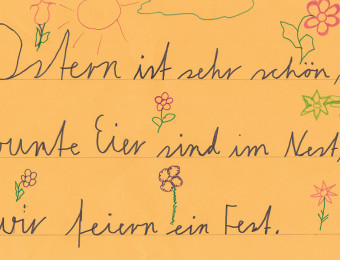 Ostern ist sehr schön,
bunte Eier sind im Nest,
wir feiern ein Fest.